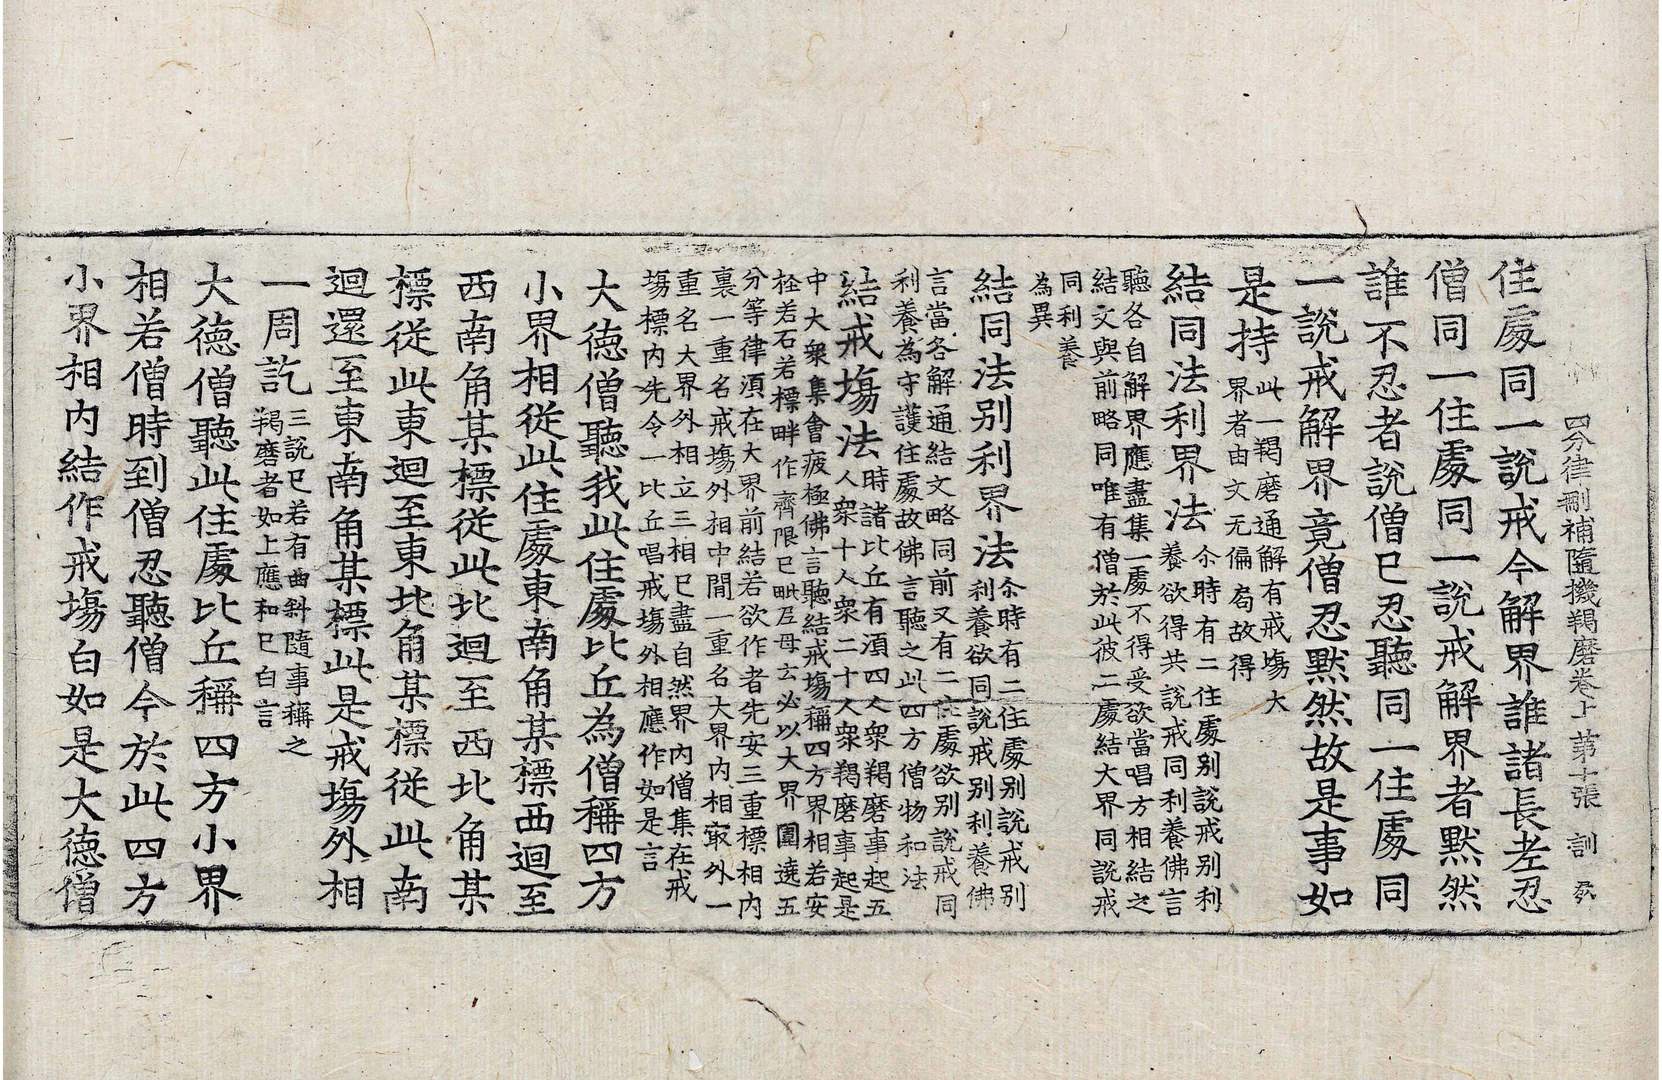 四分律刪補隨機羯磨卷上 第十張 訓
住處同一說戒今解界誰諸長老忍
僧同一住處同一說戒解界者默然
誰不忍者說僧已忍聽同一住處同
一說戒解界竟僧忍默然故是事如
是持
此一羯磨通解有戒塲大
界者由文无偏局故得
結同法利界法
尒時有二住處别說戒别利
養欲得共說戒同利養佛言
聽各自解界應盡集一處不得受欲當唱方相結之
結文與前略同唯有僧於此彼二處結大界同說戒
同利養
為異
結同法别利界法
尒時有二住處别說戒别
利養欲同說戒别利養佛
言當各解通結文略同前又有二住處欲别說戒同
利養為守護住處故佛言聽之此四方僧物和法
結戒塲法
時諸比丘有湏四人衆羯磨事起五
人衆十人衆二十人衆羯磨事起是
中大衆集會疲極佛言聽結戒塲稱四方界相若安
栓若石若標畔作齊限已毗尼母云必以大界圍遶五
分等律湏在大界前結若欲作者先安三重標相内
裏一重名戒塲外相中間一重名大界内相㝡外一
重名大界外相立三相已盡自然界内僧集在戒
塲標内先令一比丘唱戒塲外相應作如是言
大德僧聽我此住處比丘為僧稱四方
小界相從此住處東南角某標西迴至
西南角某標從此北迴至西北角某
標從此東迴至東北角某標從此南
迴還至東南角某標此是戒塲外相
一周訖
三說已若有曲斜隨事稱之
羯磨者如上應和已白言
大德僧聽此住處比丘稱四方小界
相若僧時到僧忍聽僧今於此四方
小界相内結作戒塲白如是大德僧